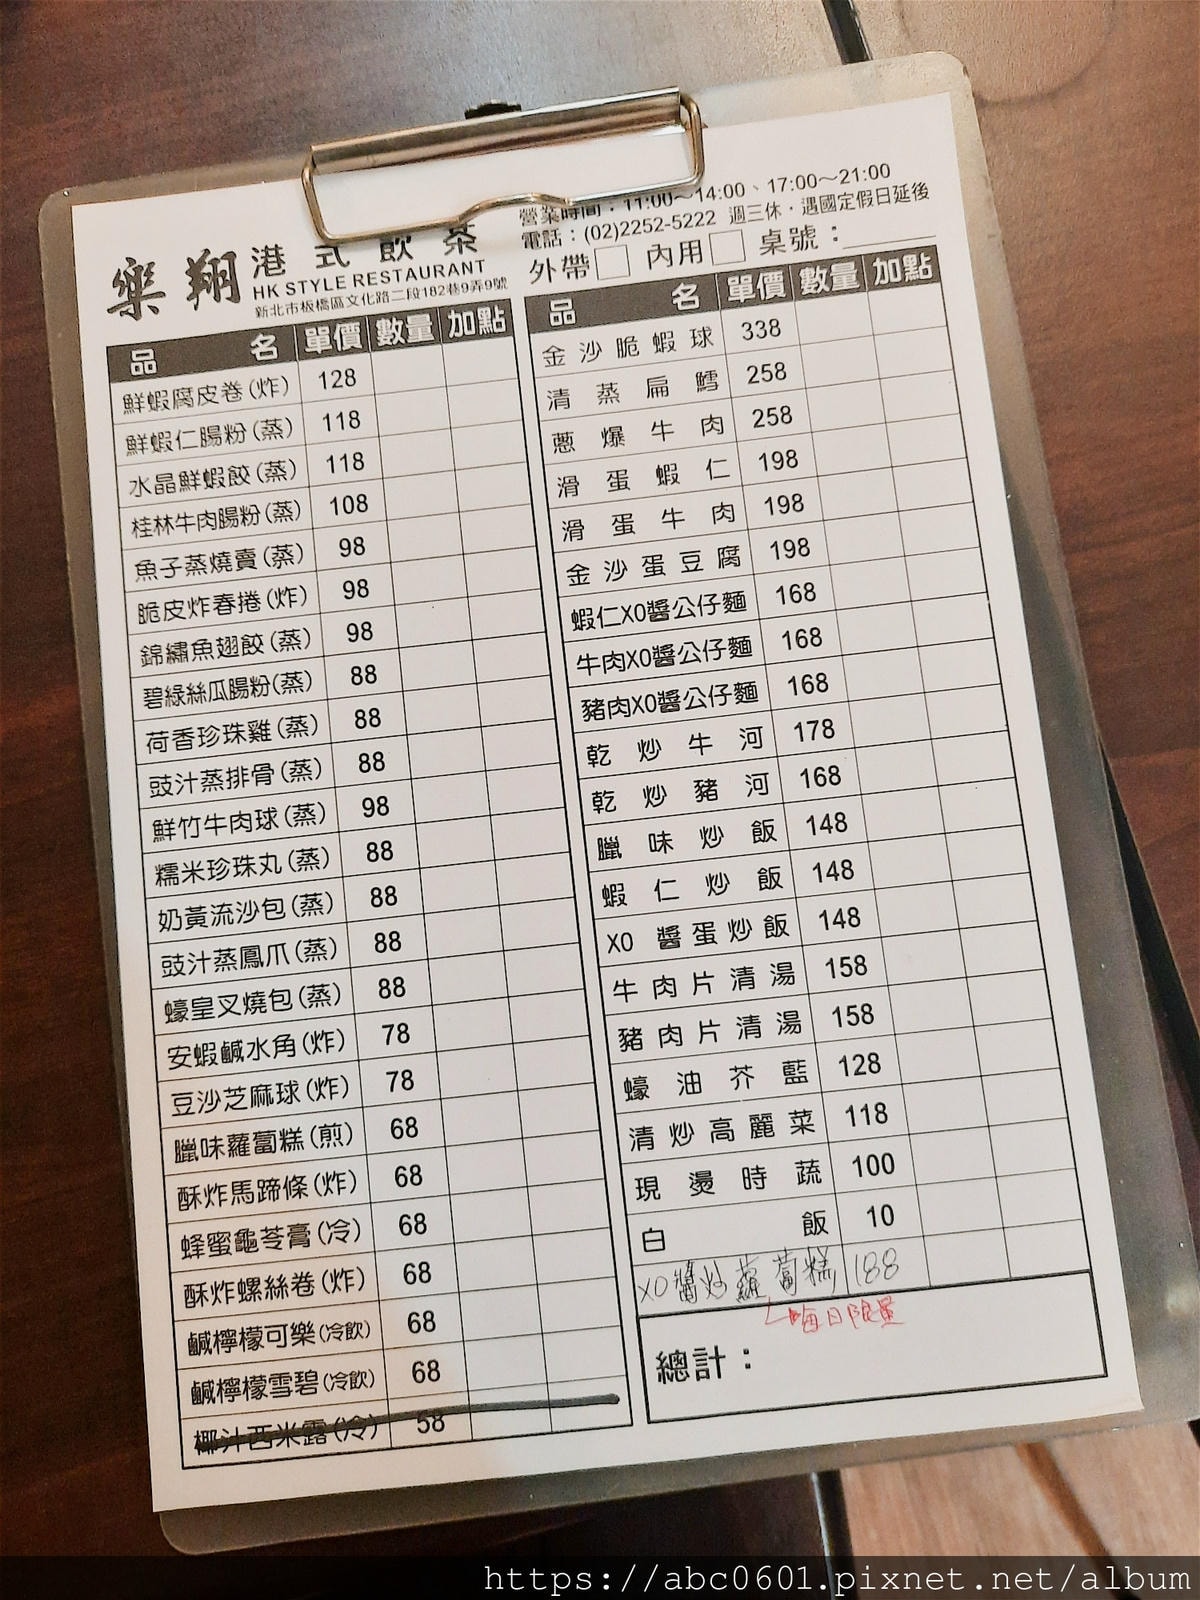 樂翔 港式飲茶
HK STYLE RESTAURANT
新北市板橋區文化路二段182巷9弄9號
營業時間：11:00～14:00、17:00～21:00
電話：(02)2252-5222 週三休．遇國定假日延後
外帶 內用 桌號：
品名 單價 數量 加點
鮮蝦腐皮卷(炸) 128
鮮蝦仁腸粉(蒸) 118
水晶鮮蝦餃(蒸) 118
桂林牛肉腸粉(蒸) 108
魚子蒸燒賣(蒸) 98
脆皮炸春捲(炸) 98
錦繡魚翅餃(蒸) 98
碧綠絲瓜腸粉(蒸) 88
荷香珍珠雞(蒸) 88
豉汁蒸排骨(蒸) 88
鮮竹牛肉球(蒸) 98
糯米珍珠丸(蒸) 88
奶黃流沙包(蒸) 88
豉汁蒸鳳爪(蒸) 88
蠔皇叉燒包(蒸) 88
安蝦鹹水角(炸) 78
豆沙芝麻球(炸) 78
臘味蘿蔔糕(煎) 68
酥炸馬蹄條(炸) 68
蜂蜜龜苓膏(冷) 68
酥炸螺絲卷(炸) 68
鹹檸檬可樂(冷飲) 68
鹹檸檬雪碧(冷飲) 68
椰汁西米露(冷) 58
品名 單價 數量 加點
金沙脆蝦球 338
清蒸扁鱈 258
蔥爆牛肉 258
滑蛋蝦仁 198
滑蛋牛肉 198
金沙蛋豆腐 198
蝦仁XO醬公仔麵 168
牛肉XO醬公仔麵 168
豬肉XO醬公仔麵 168
乾炒牛河 178
乾炒豬河 168
臘味炒飯 148
蝦仁炒飯 148
XO醬蛋炒飯 148
牛肉片清湯 158
豬肉片清湯 158
蠔油芥藍 128
清炒高麗菜 118
現燙時蔬 100
白飯 10
XO醬炒蘿蔔糕 188
每日限量
總計：
https://abc0601.pixnet.net/album